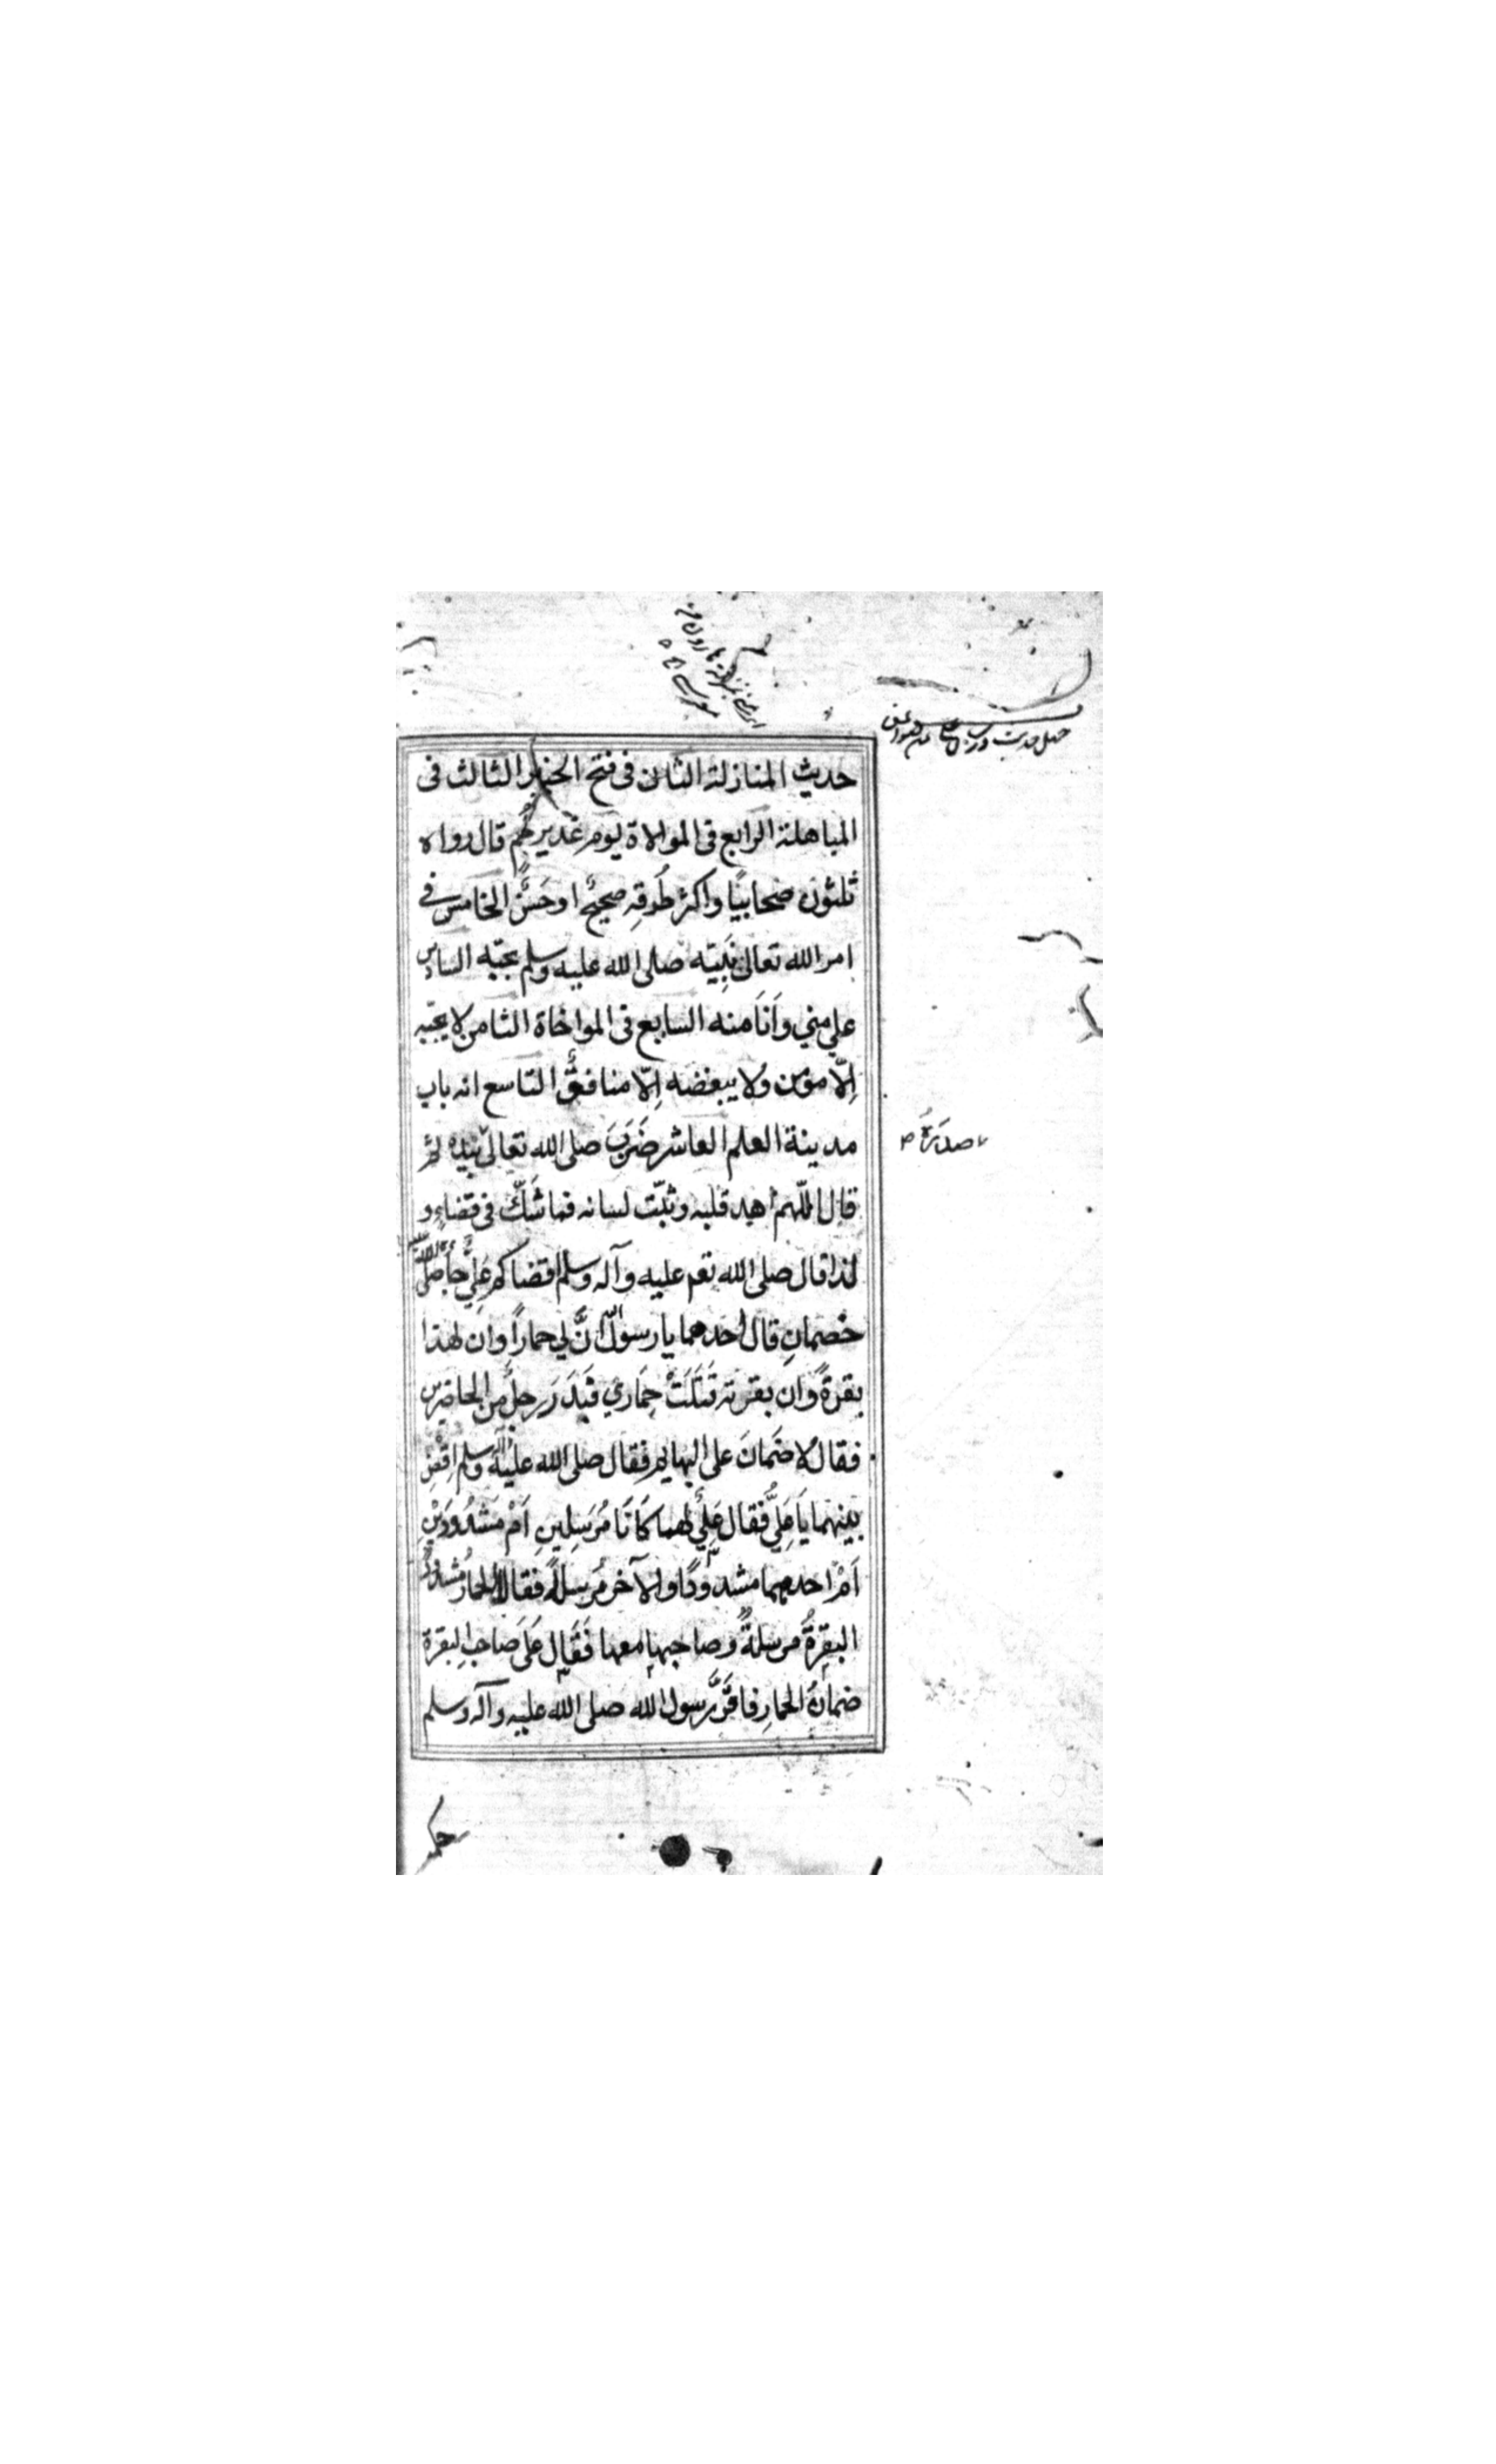 چهل حدیث در
حدیث المنازلة الثانی فی فتح الخیبر الثالث فی
المباهلة الرابع فی الموالاة یوم غدیر خُم قال رواه
ثلثون صحابیًا واکثر طُرقِه صحیحٌ او حَسَنٌ الخامس فی
امر الله تعالی نَبِیّه صلی الله علیه وسلم بحبّه السادس
علی منی وَاَنَا منه السابع فی المواخاة الثامن لا یحبّه
اِلّا مؤمن ولا یبغضه اِلّا منافقٌ التاسع انه باب
مدینة العلم العاشر ضَرَبَ صلی الله تعالی بیده
قال اللّهم اهد قلبه وثبّت لسانه فما شَكّ فی قضاءٍ و
لذا قال صلی الله تعم علیه وآله وسلم اقضاکم عَلِیٌّ جاء
خصمانِ قال احدهما یا رسول الله انَّ لی حمارًا وان لهذا
بقرةً وان بقرته قَتَلَتْ حِمَاری فَبَدَرَ رجلٌ من الحاضرین
فقال لا ضَمانَ علی البهایم فقال صلی الله علیه وآله وسلم اِقْضِ
بینهما یَا عَلِیُّ فقال عَلِیٌّ لهما کَانَا مُرسَلِینِ اَمْ مَشدُودَیْنِ
اَمْ احدهما مشدودًا والآخر مُرسلًا فقالا الحمار مشدودٌ
البقرةُ مرسلةً وصاحبها معها فَقَال عَلَی صَاحبِ البقرة
ضمانُ الحمارِ فاقَرَّ رسول الله صلی الله علیه وآله وسلم
حکمه